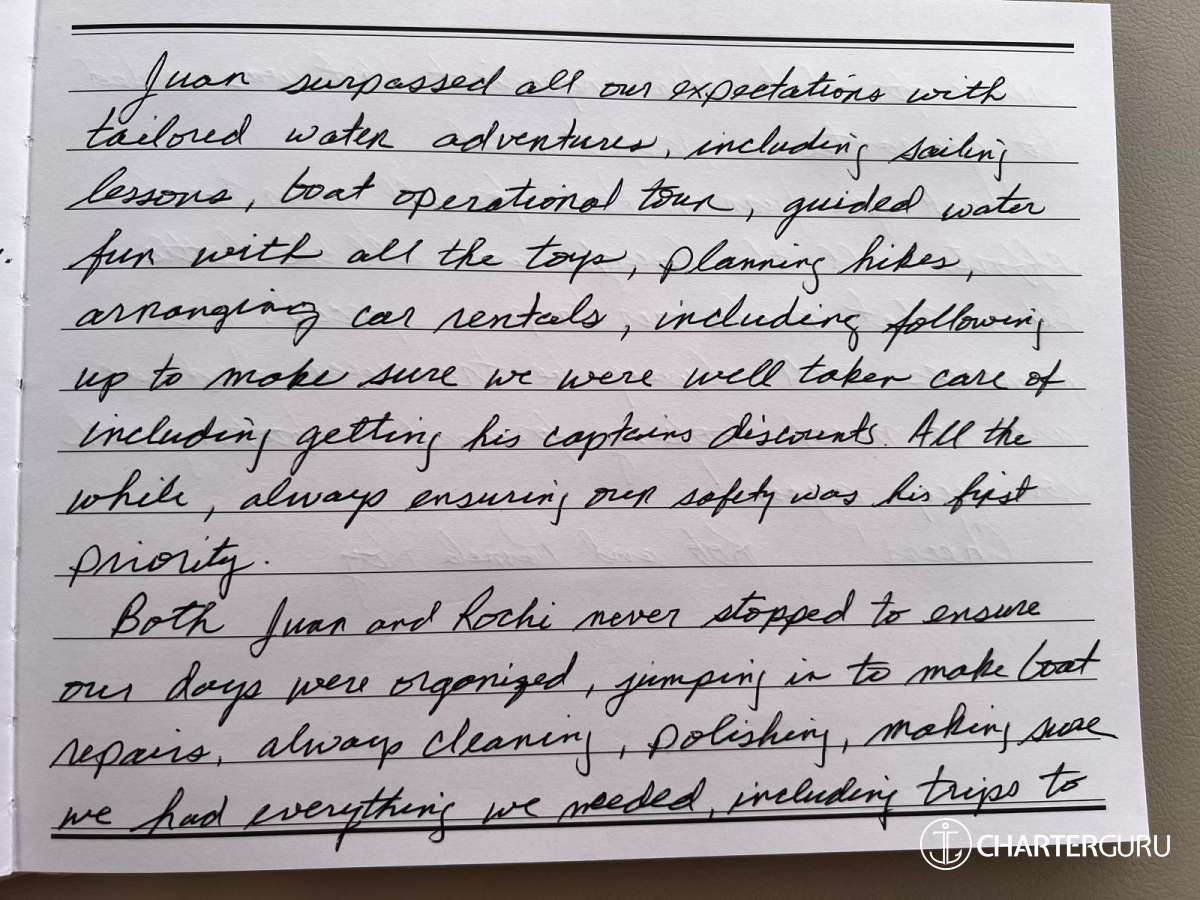 Juan surpassed all our expectations with
tailored water adventures, including sailing
lessons, boat operational tour, guided water
fun with all the toys, planning hikes,
arranging car rentals, including following
up to make sure we were well taken care of
including getting his captains discounts. All the
while, always ensuring our safety was his first
priority.
Both Juan and Rochi never stopped to ensure
our days were organized, jumping in to make boat
repairs, always cleaning, polishing, making sure
we had everything we needed, including trips to
CHARTERGURU